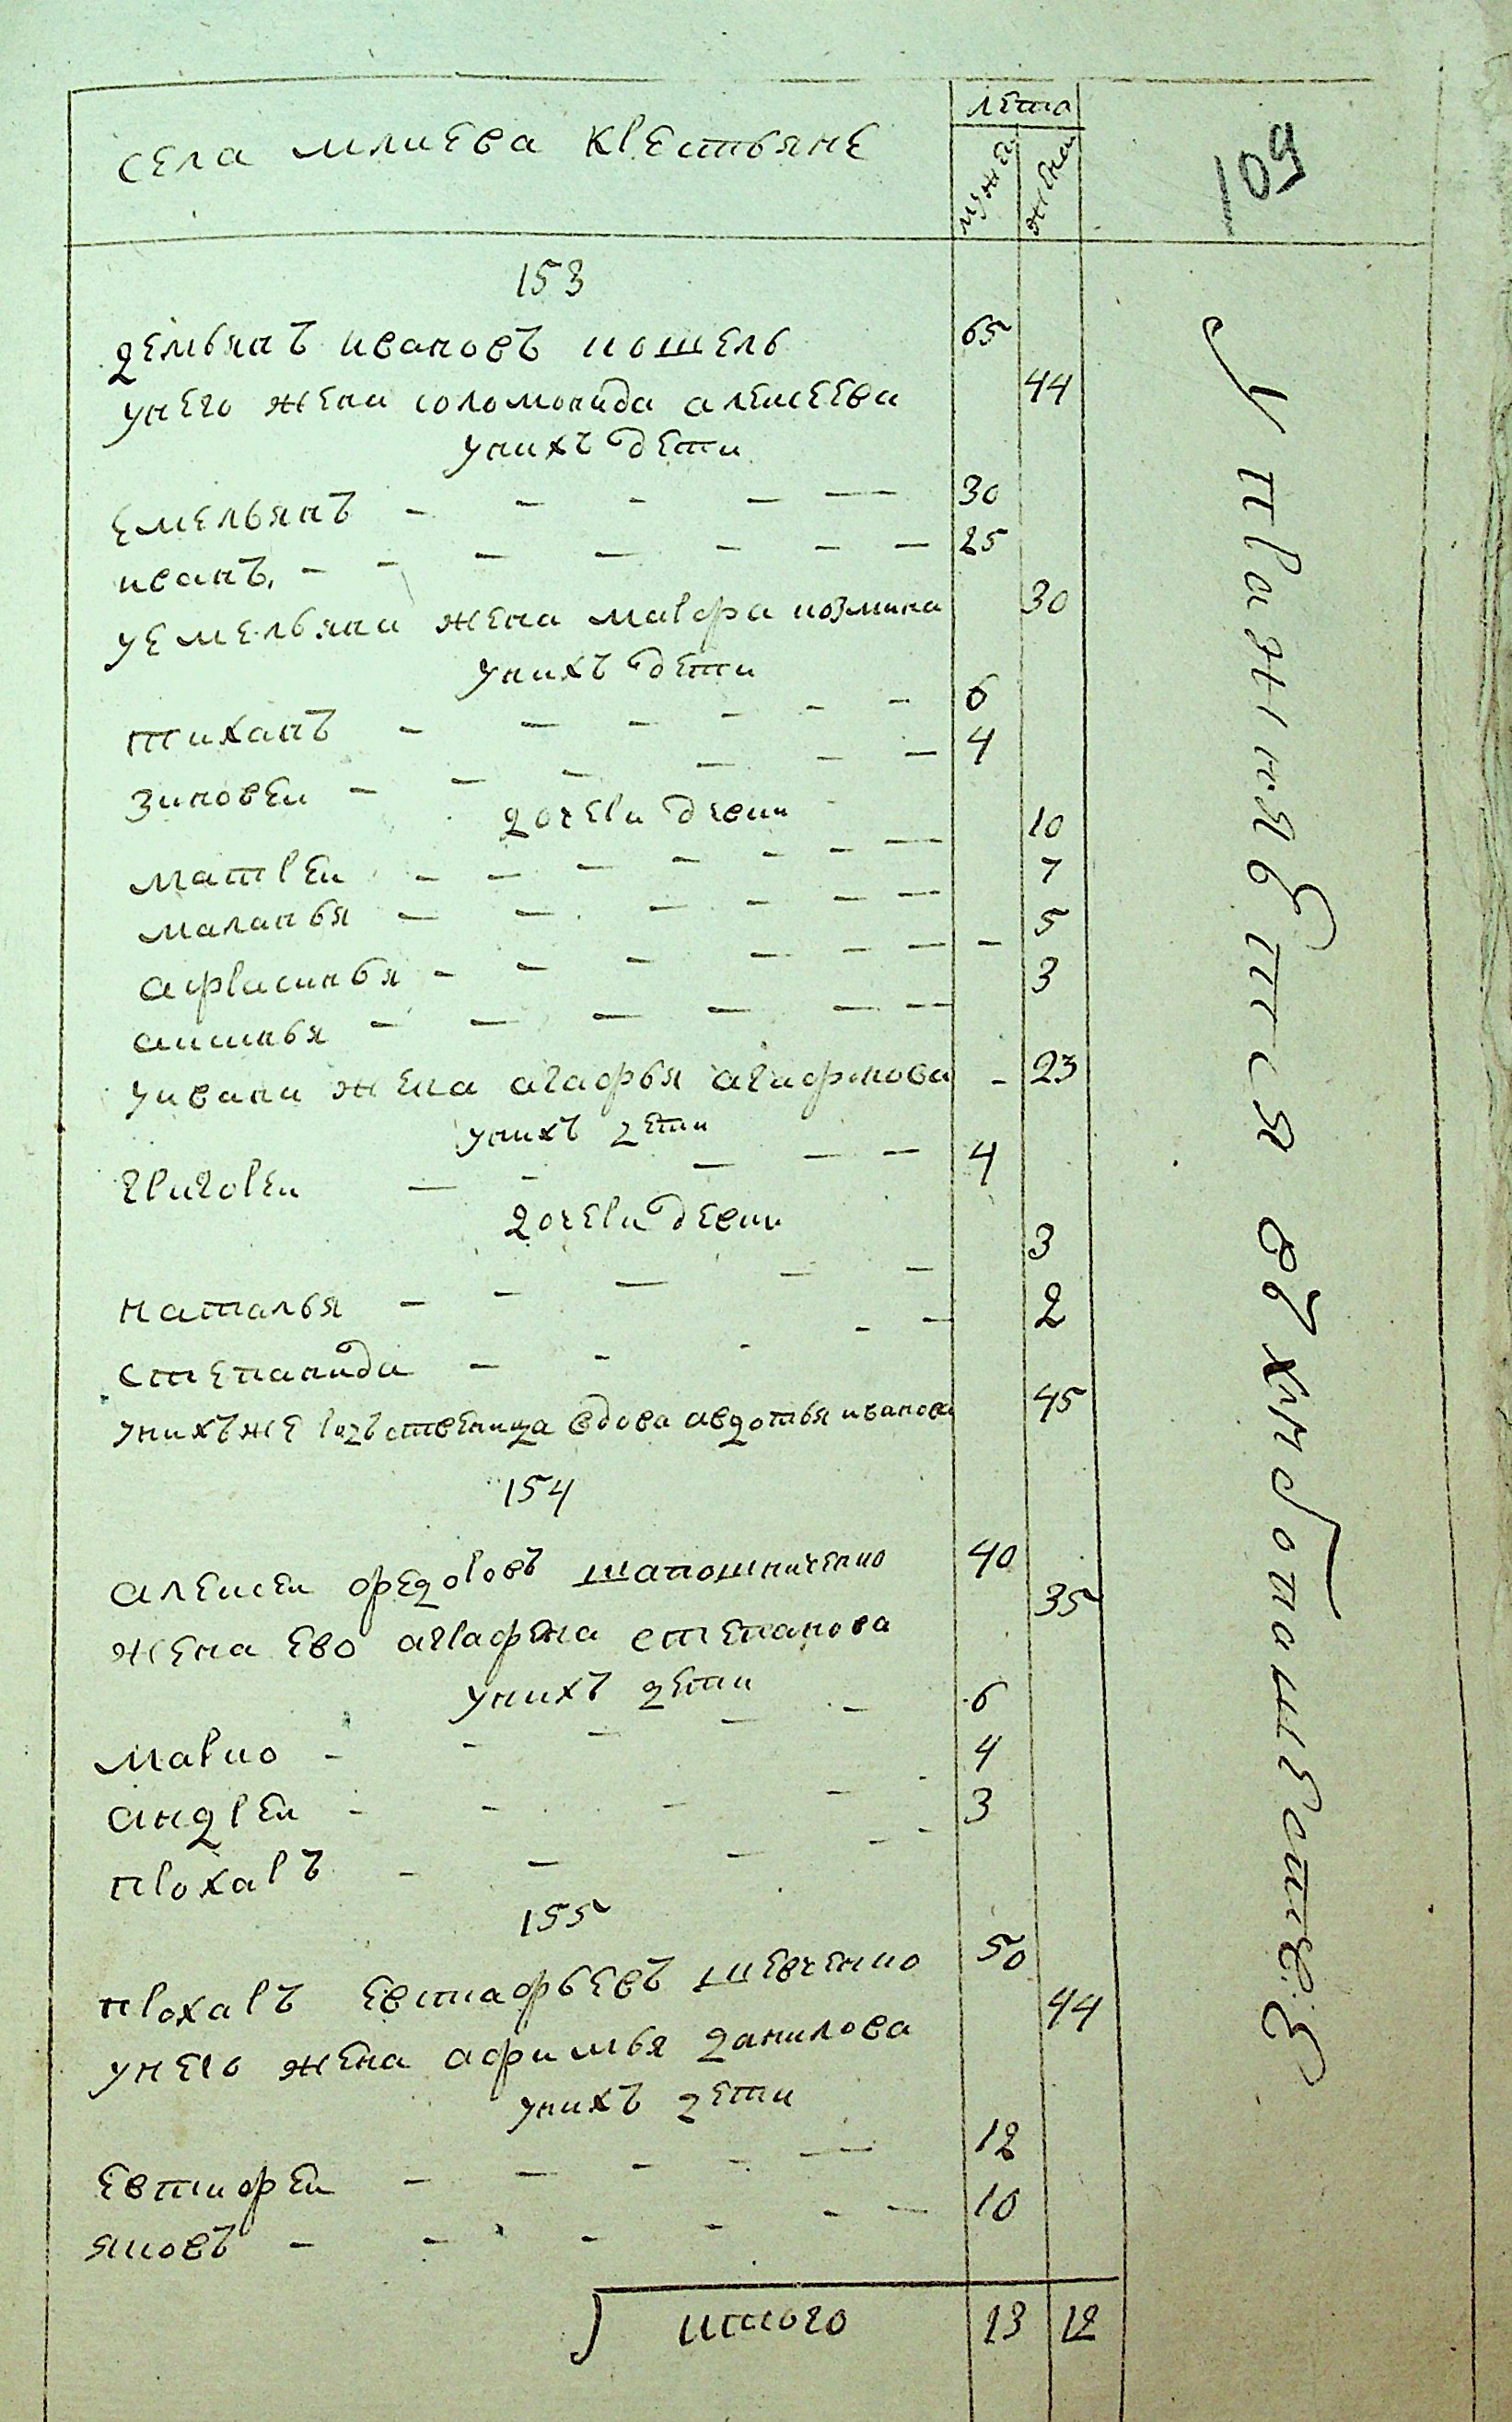 лета
села млиева крестьяне
мужеск женск
109
153
демьянъ ивановъ кошель 65
унего жена соломонида алексеева 44
унихъ дети
емельянъ 30
иванъ 25
уемельяна жена мавра козмина 30
унихъ дети
тиханъ 6
зиновеи 4
дочери девки
матрен 10
маланья 7
афрасинья 5
аксинья 3
уивана жена агафья агафонова 23
унихъ дети
григореи 4
дочери девки
наталья 3
степанида 2
унихъже родственица вдова авдотья иванова 45
154
алексеи федоровъ шапошниченко 40
жена ево аграфена степанова 35
унихъ дети
марко 6
андреи 4
прохаръ 3
155
прохаръ евтафьевъ шевченко 50
унего жена афимья данилова 44
унихъ дети
евтифеи 12
яковъ 10
итого 13 12
упражняется въ хлебопашестве